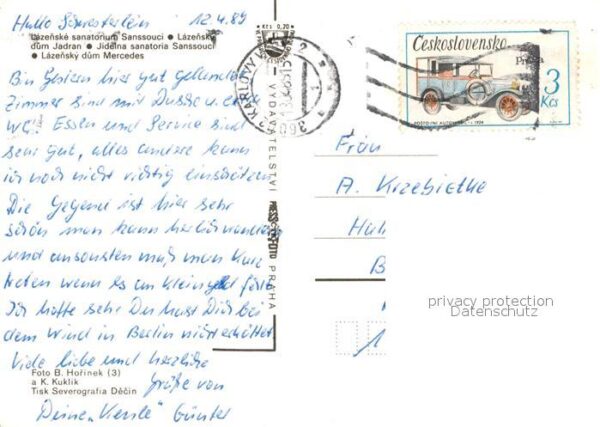 Hallo Schwesterlein 12.4.89
Lázeňské sanatorium Sanssouci • Lázeňský
dům Jadran • Jídelna sanatoria Sanssouci
• Lázeňský dům Mercedes
Bin gestern hier gut gelandet
Zimmer sind mit Dusche u.
WC. Essen und Service sind
sehr gut, alles andere kann
ich noch nicht richtig einschätzen
Die Gegend ist hier sehr
schön man kann herrlich wandern
und ansonsten muß man kurz
treten wenn es am Kleingeld fehlt
Ich hoffe sehr Du hast Dich bei
dem Wind in Berlin nicht erkältet
Viele liebe und herzliche
Grüße von
Deine „ " Günter
Foto B. Hořínek (3)
a K. Kuklík
Tisk Severografia Děčín
Kčs 0,70
VYDAVATELSTVÍ PRESSFOTO PRAHA
KARLOVY
Československo
Praga
3
Kčs
POŠTOVNÍ AUTOMOBIL
Frau
A. Krzebietke
Hüh
B
1
privacy protection
Datenschutz